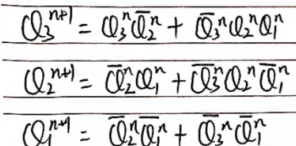 Q₃ⁿ⁺¹ = Q₃ⁿQ̄₂ⁿ + Q̄₃ⁿQ₂ⁿQ₁ⁿ
Q₂ⁿ⁺¹ = Q̄₂ⁿQ₁ⁿ + Q̄₃ⁿQ₂ⁿQ̄₁ⁿ
Q₁ⁿ⁺¹ = Q̄₂ⁿQ̄₁ⁿ + Q̄₃ⁿQ̄₁ⁿ